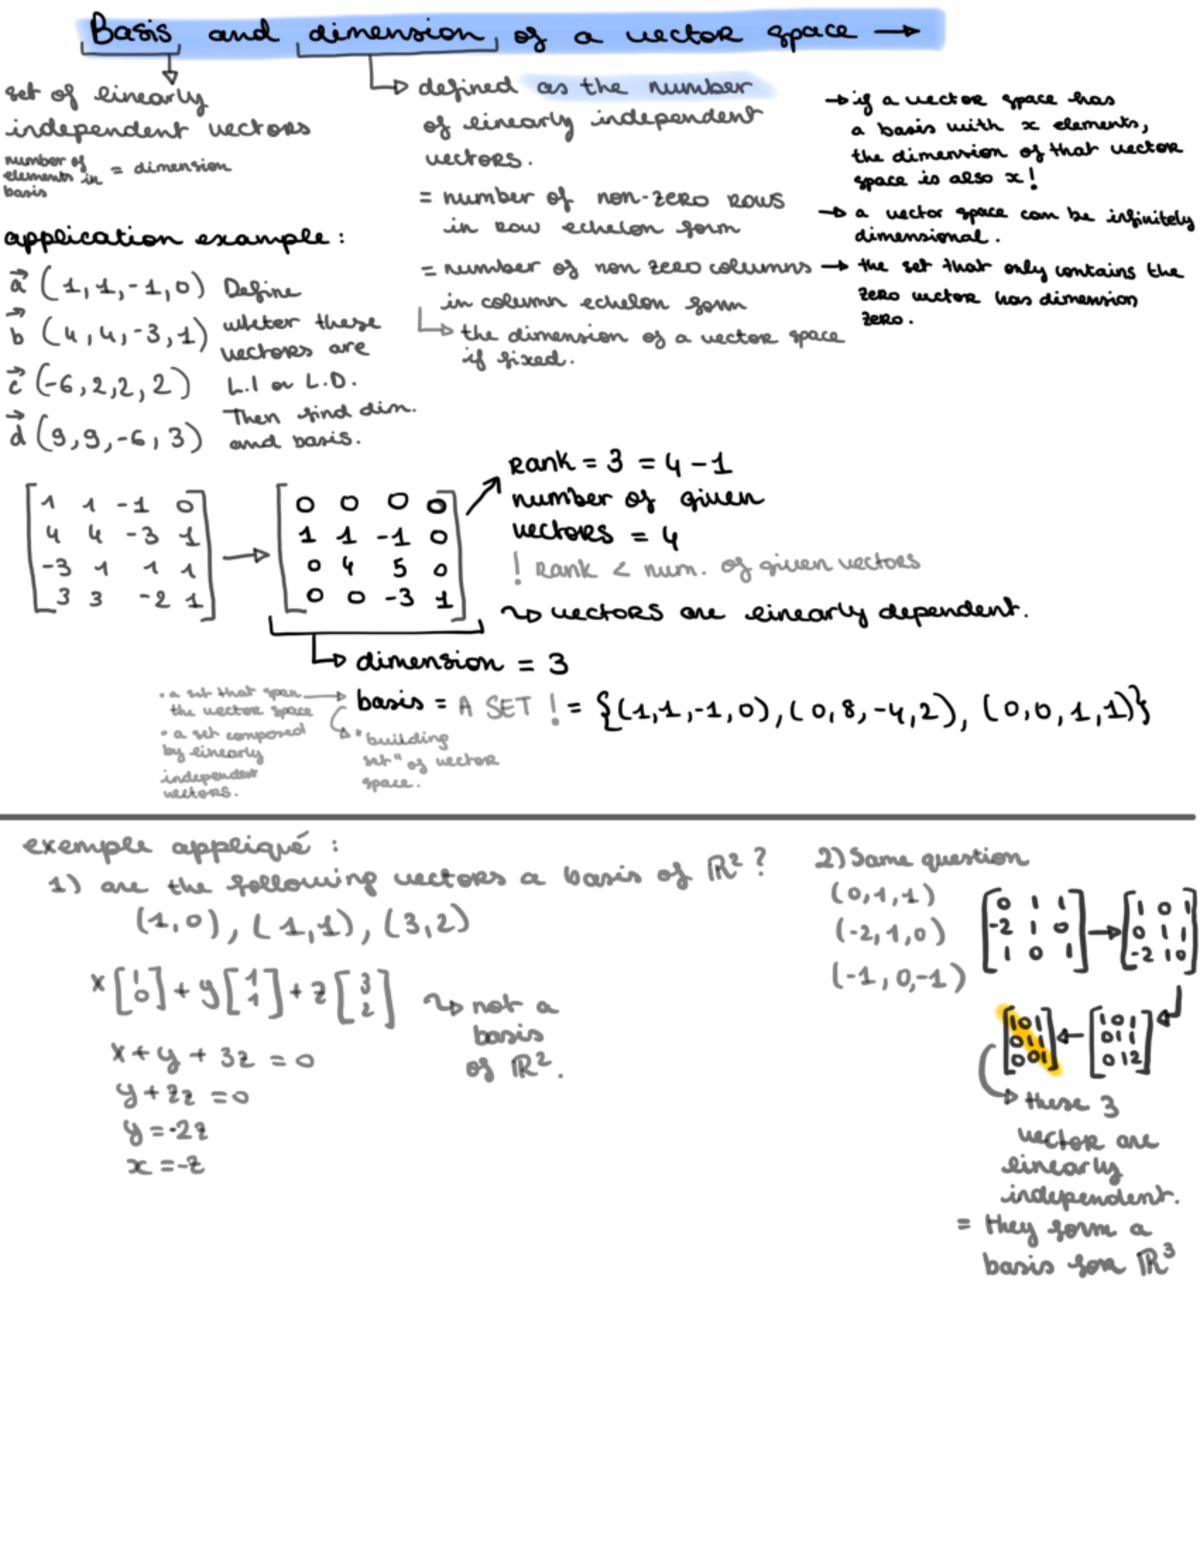 Basis and dimension of a vector space →
set of linearly
independent vectors
number of
elements in = dimension
basis
defined as the number
of linearly independent
vectors.
= number of non-zero rows
in row echelon form
= number of non zero columns
in column echelon form
the dimension of a vector space
if fixed.
→ if a vector space has
a basis with x elements,
the dimension of that vector
space is also x!
→ a vector space can be infinitely
dimensional.
→ the set that only contains the
zero vector has dimension
zero.
application example:
a (1,1,-1,0) Define
b (4,4,-3,1) wheter these
vectors are
c (-6,2,2,2) L.I or L.D.
d (9,9,-6,3) Then find dim.
and basis.
1 1 -1 0
4 4 -3 1
-3 1 1 1
3 3 -2 1
→
0 0 0 0
1 1 -1 0
0 4 5 0
0 0 -3 1
rank = 3 = 4-1
number of given
vectors = 4
! rank < num. of given vectors
vectors are linearly dependent.
dimension = 3
• a set that span
the vector space
• a set composed
by linearly
independent
vectors.
basis = A SET ! = {(1,1,-1,0), (0,8,-4,2), (0,0,1,1)}
"building
set" of vector
space.
exemple appliqué :
1) are the following vectors a basis of ℝ² ?
(1,0), (1,1), (3,2)
x[1 0] + y[1 1] + z[3 2]
not a
basis
of ℝ².
x+y+3z = 0
y+2z = 0
y = -2z
x = -z
2) Same question
(0,1,1)
(-2,1,0)
(-1,0,-1)
0 1 1
-2 1 0
1 0 1
→
1 0 1
0 1 1
-2 1 0
1 0 1
0 1 1
0 1 2
←
1 0 1
0 1 1
0 0 1
these 3
vector are
linearly
independent.
= they form a
basis for ℝ³